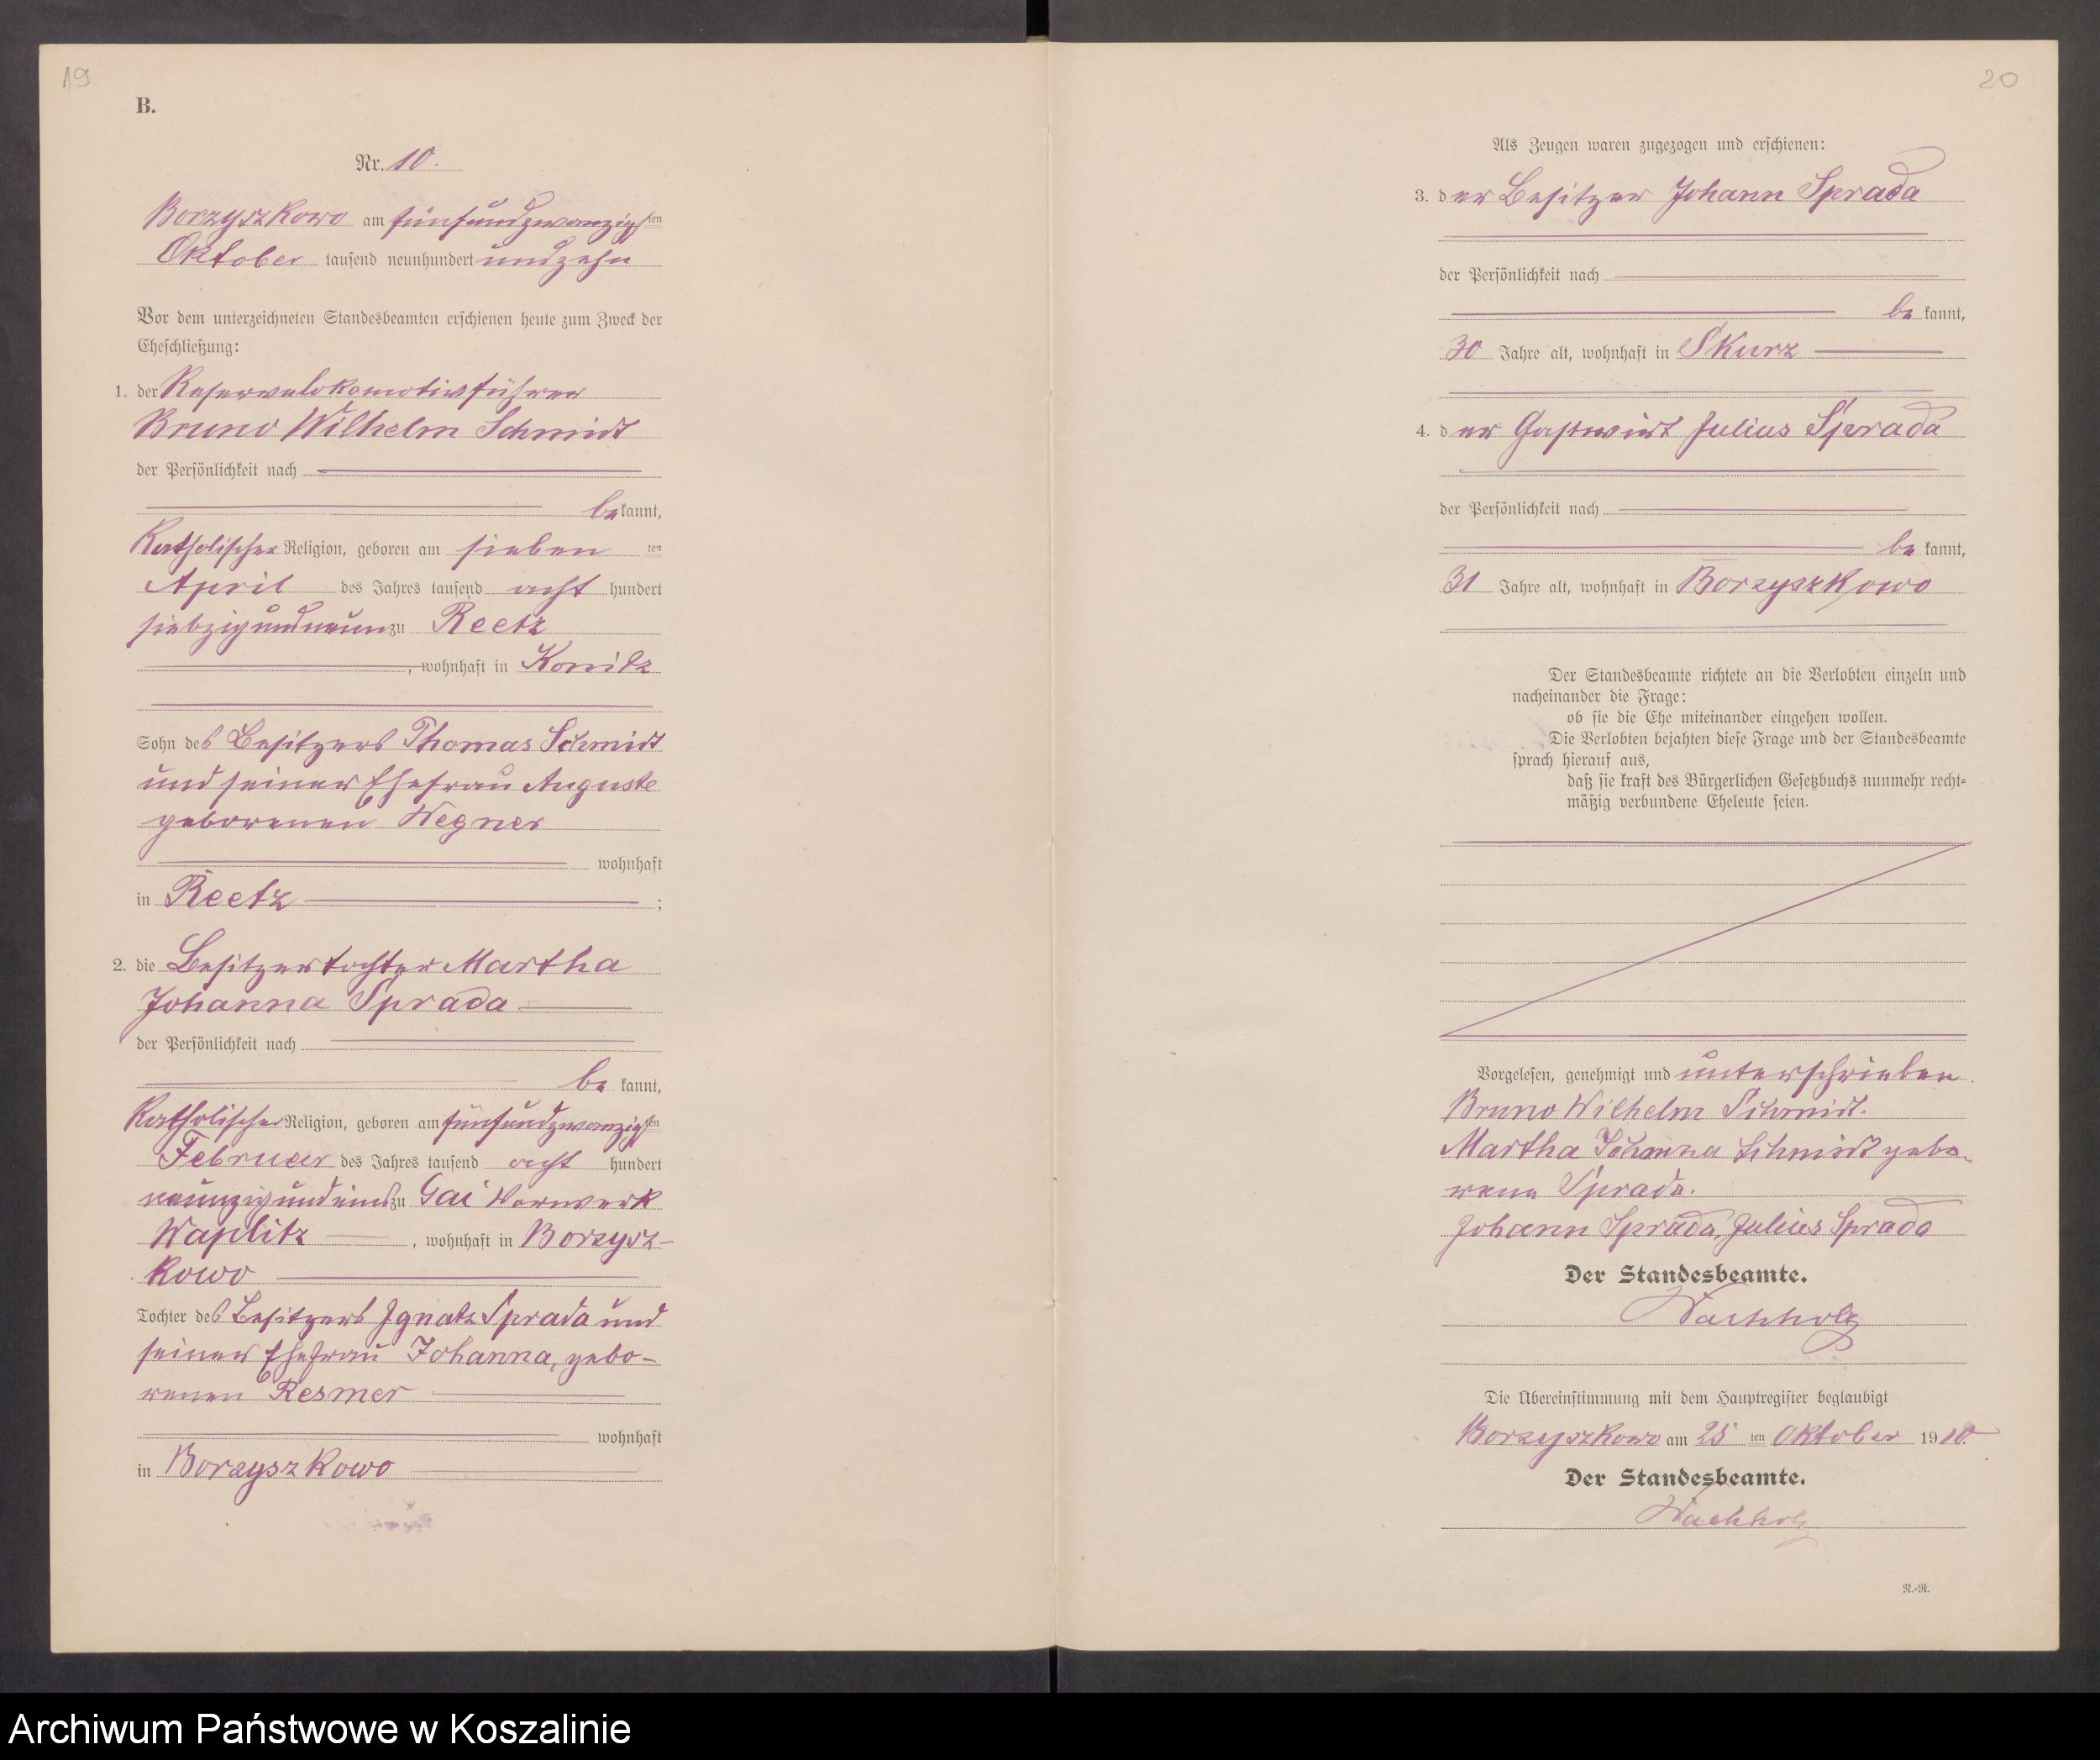 19
B.
Nr. 10.
Borzyszkowo am fünfundzwanzigsten
Oktober tausend neunhundert und zehn
Vor dem unterzeichneten Standesbeamten erschienen heute zum Zweck der
Eheschließung:
1. der Reservelokomotivführer
Bruno Wilhelm Schmidt
der Persönlichkeit nach
bekannt,
Katholischer Religion, geboren am sieben ten
April des Jahres tausend acht hundert
siebzigundneun zu Reetz
, wohnhaft in Konitz
Sohn des Besitzers Thomas Schmidt
und seiner Ehefrau Auguste
geborenen Wegner
wohnhaft
in Reetz ;
2. die Besitzertochter Martha
Johanna Sprada
der Persönlichkeit nach
be kannt,
Katholischer Religion, geboren am fünfundzwanzigsten
Februar des Jahres tausend acht hundert
neunzigundeins zu Gai Vorwerk
Waplitz , wohnhaft in Borzysz-
kowo
Tochter des Besitzers Ignatz Sprada und
seiner Ehefrau Johanna, gebo-
renen Resmer
wohnhaft
in Borzyszkowo
20
Als Zeugen waren zugezogen und erschienen:
3. der Besitzer Johann Sprada
der Persönlichkeit nach
be kannt,
30 Jahre alt, wohnhaft in Skurz
4. der Gastwirt Julius Sprada
der Persönlichkeit nach
be kannt,
31 Jahre alt, wohnhaft in Borzyszkowo
Der Standesbeamte richtete an die Verlobten einzeln und
nacheinander die Frage:
ob sie die Ehe miteinander eingehen wollen.
Die Verlobten bejahten diese Frage und der Standesbeamte
sprach hierauf aus,
daß sie kraft des Bürgerlichen Gesetzbuchs nunmehr recht-
mäßig verbundene Eheleute seien.
Vorgelesen, genehmigt und unterschrieben
Bruno Wilhelm Schmidt.
Martha Johanna Schmidt gebo-
rene Sprada.
Johann Sprada, Julius Sprada
Der Standesbeamte.
Wachholz
Die Übereinstimmung mit dem Hauptregister beglaubigt
Borzyszkowo am 25 ten Oktober 1910.
Der Standesbeamte.
Wachholz
N.-R.
Archiwum Państwowe w Koszalinie